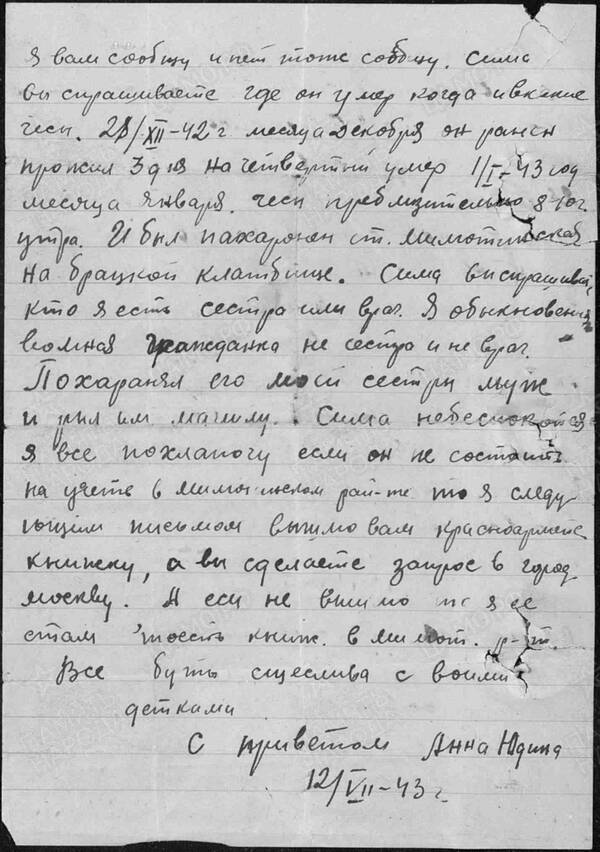 я вам сообщу и нет тоже собшу. Сима
вы спрашиваете где он умер когда и в кокие
чесы. 28/XII-42 г месяца декобря он ранен
прожил 3 дня на четвертый умер 1/I-43 год
месяца января. чесы преблизительно в 10 г.
утра. И был пахаронен ст.
на брацкой кладбище. Сима вы спрашивает
кто я есть сестра или врач. Я обыкновення
вольная гражданка не сестра и не врач.
Похаранял его мой сестры муж
и рыл им магилу. Сима небеспокойся
я все похлапочу если он не состаить
на учете в райн-те то я следу
ющим письмом вышлю вам красноармейс
книжку, а вы сделаете запрос в город
москву. А еси не вышлю то я ее
стам тоесть книж. в мимот. р-т.
Все буть сщеслива с воими
детками
С приветом Анна Юдина
12/VII-43 г.